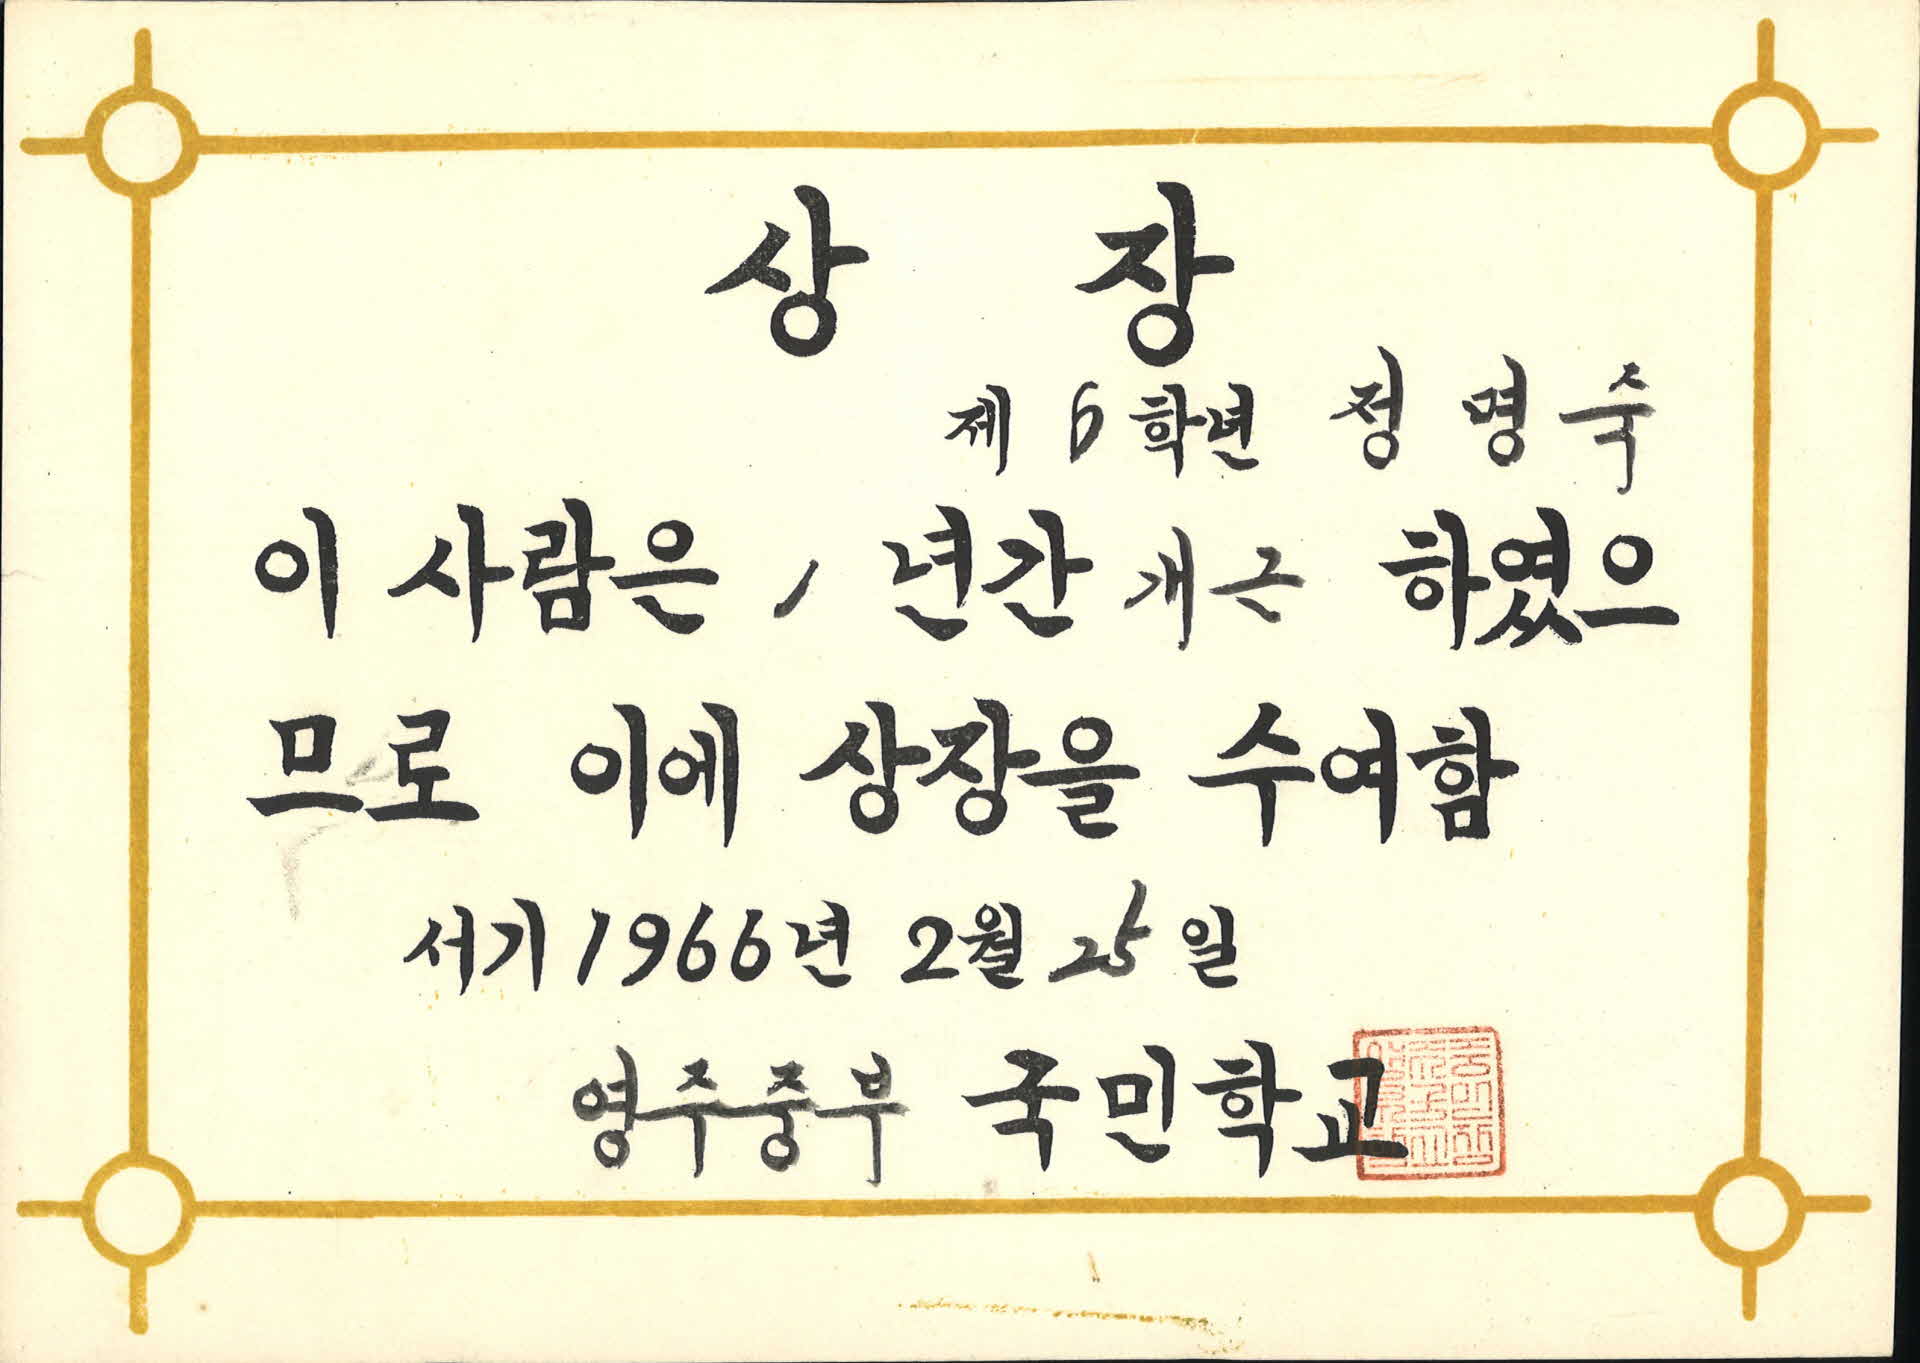 상 장
제 6 학년 정 명 숙
이 사람은 1 년간 개근 하였으
므로 이에 상장을 수여함
서기 1966년 2월 25일
영주중부 국민학교